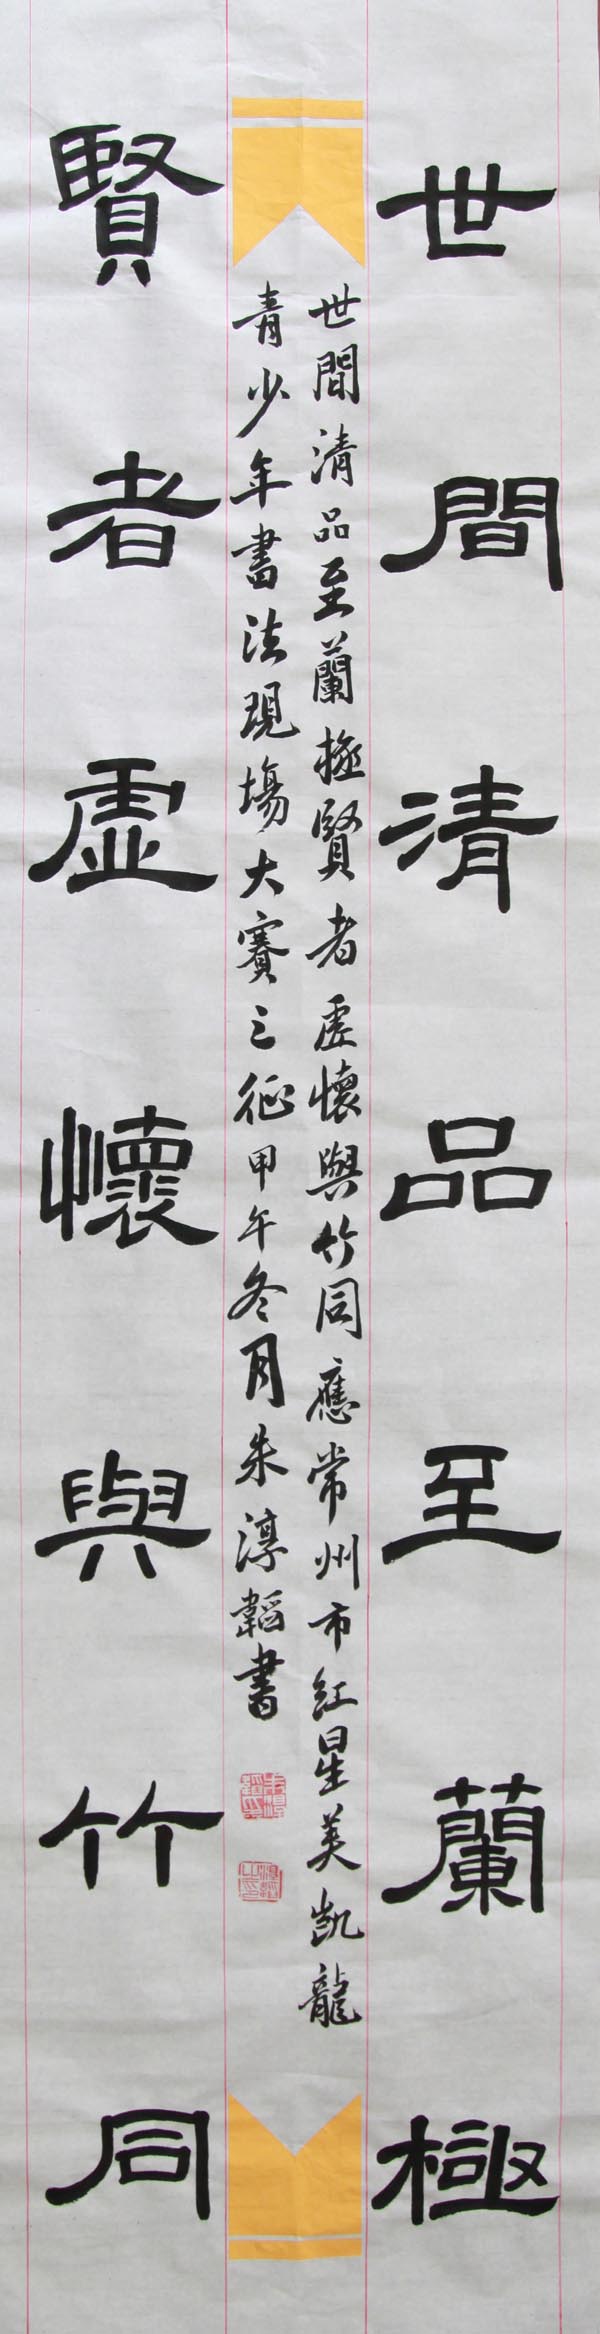 世間清品至蘭極
世間清品至蘭極賢者虛懷與竹同應常州市紅星美凱龍
青少年書法現場大賽之征甲午冬月朱淳韜書
賢者虛懷與竹同